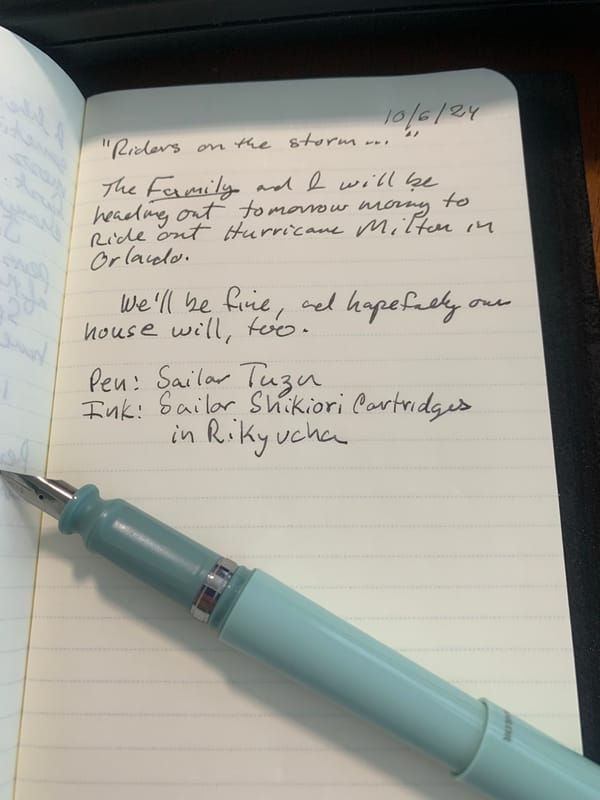 10/6/24
"Riders on the storm..."
The Family and I will be
heading out tomorrow morng to
Ride out Hurricane Milton in
Orlando.
We'll be fine, and hopefully our
house will, too.
Pen: Sailor Tuzu
Ink: Sailor Shikiori Cartridges
in Rikyucha